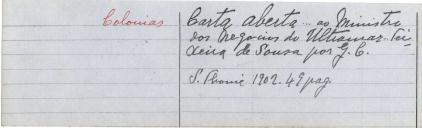 Colonias
Carta aberta... ao Ministro
dos Negocios do Ultramar. Tei-
xeira de Sousa por G. C.
S. Thomé 1902. 49 pag.